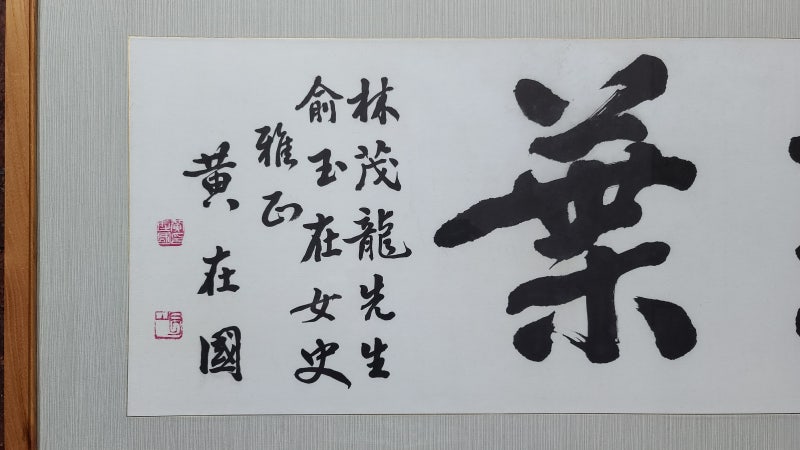 葉
林茂龍先生
俞玉在女史
雅正
黃在國